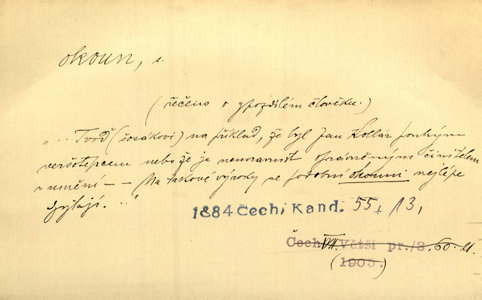 okoun, s.
(řečeno o zpozdilém člověku.)
„.. Tvrď (šosákovi) na příklad, že byl Jan Kollár pouhým
veršotepcem nebo že je nemravnost oprávněným činitelem
v umění — — Na takové výroky se podobní okouni nejlépe
chytají. .."
1884 Čech, Kand. 55, 13,
Čech VII. Větší pr./2. 60. 11.
(1903.)